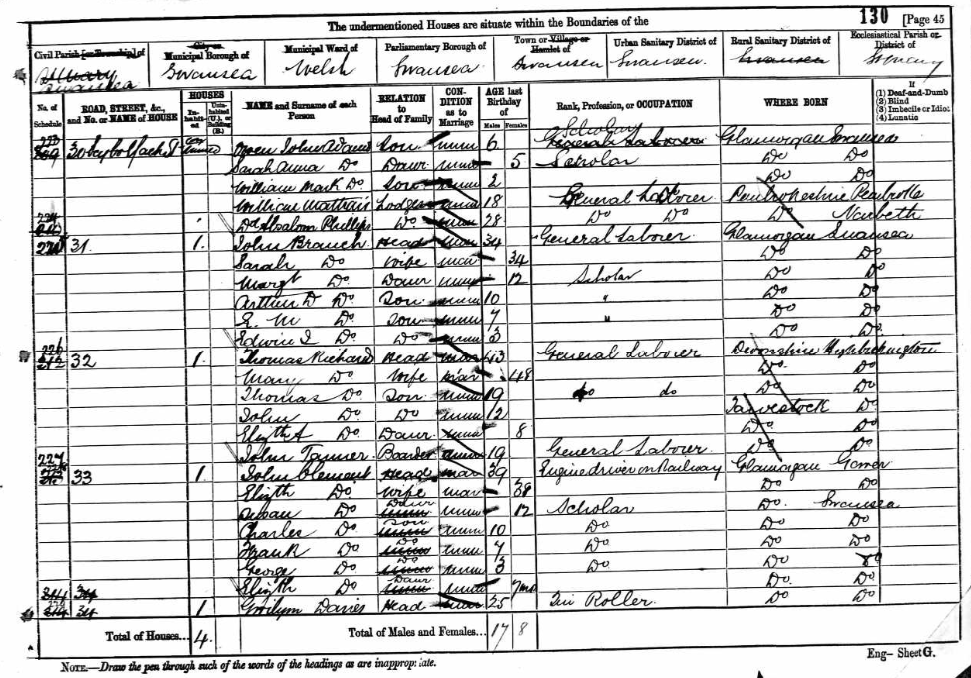 The undermentioned Houses are situate within the Boundaries of the
130 [Page 45
Civil Parish [or Township] of
City or Municipal Borough of
Municipal Ward of
Parliamentary Borough of
Town or Village or Hamlet of
Urban Sanitary District of
Rural Sanitary District of
Ecclesiastical Parish or District of
St Mary Swansea
Swansea
Welsh
Swansea
Swansea
Swansea
Swansea
No. of Schedule
ROAD, STREET, &c., and No. or NAME of HOUSE
HOUSES
In-habit-ed
Unin-habited (U.), or Building (B.)
NAME and Surname of each Person
RELATION to Head of Family
CON-DITION as to Marriage
AGE last Birthday of
Males
Females
Rank, Profession, or OCCUPATION
WHERE BORN
If
(1) Deaf-and-Dumb
(2) Blind
(3) Imbecile or Idiot
(4) Lunatic
30 Owen John Son unm 6 Scholar Glamorgan Swansea
Sarah Anna Do Daur unm 5 Scholar Do Do
William Mark Do Son unm 2 Do Do
William Lodger unm 18 General Laborer Pembrokeshire Pembroke
Phillips Do 28 Do Do Do Narbeth
31 1. John Branch Head mar 34 General Laborer Glamorgan Swansea
Sarah Do Wife mar 34 Do Do
Margt Do Daur unm 12 Scholar Do Do
Arthur D Do Son unm 10 " Do Do
E. M Do Son unm 7 " Do Do
Edwin J. Do Do unm 3 Do Do
226
32 1. Thomas Richard Head mar 43 General Laborer Devonshire
Mary Do Wife mar 48 Do Do
Thomas Do Son unm 19 do do Do Do
John Do Do unm 12 Tawestock Do
Elizth A Do Daur unm 8 Do Do
John Tanner Boarder unm 19 General Labourer Do Do
227
33 1. John Clement Head mar 39 Engine driver on Railway Glamorgan Gower
Elizth Do Wife mar 38 Do Do
Susan Do Daur unm 12 Scholar Do. Swansea
Charles Do Son unm 10 Do Do Do
Frank Do Do unm 7 Do Do Do
George Do Do unm 3 Do Do Do
Elizth Do Daur unm 7mo Do. Do
34 1 Gwilym Davies Head 25 Tin Roller. Do Do
Total of Houses... 4.
Total of Males and Females... 17 8
NOTE.—Draw the pen through such of the words of the headings as are inappropriate.
Eng— Sheet G.